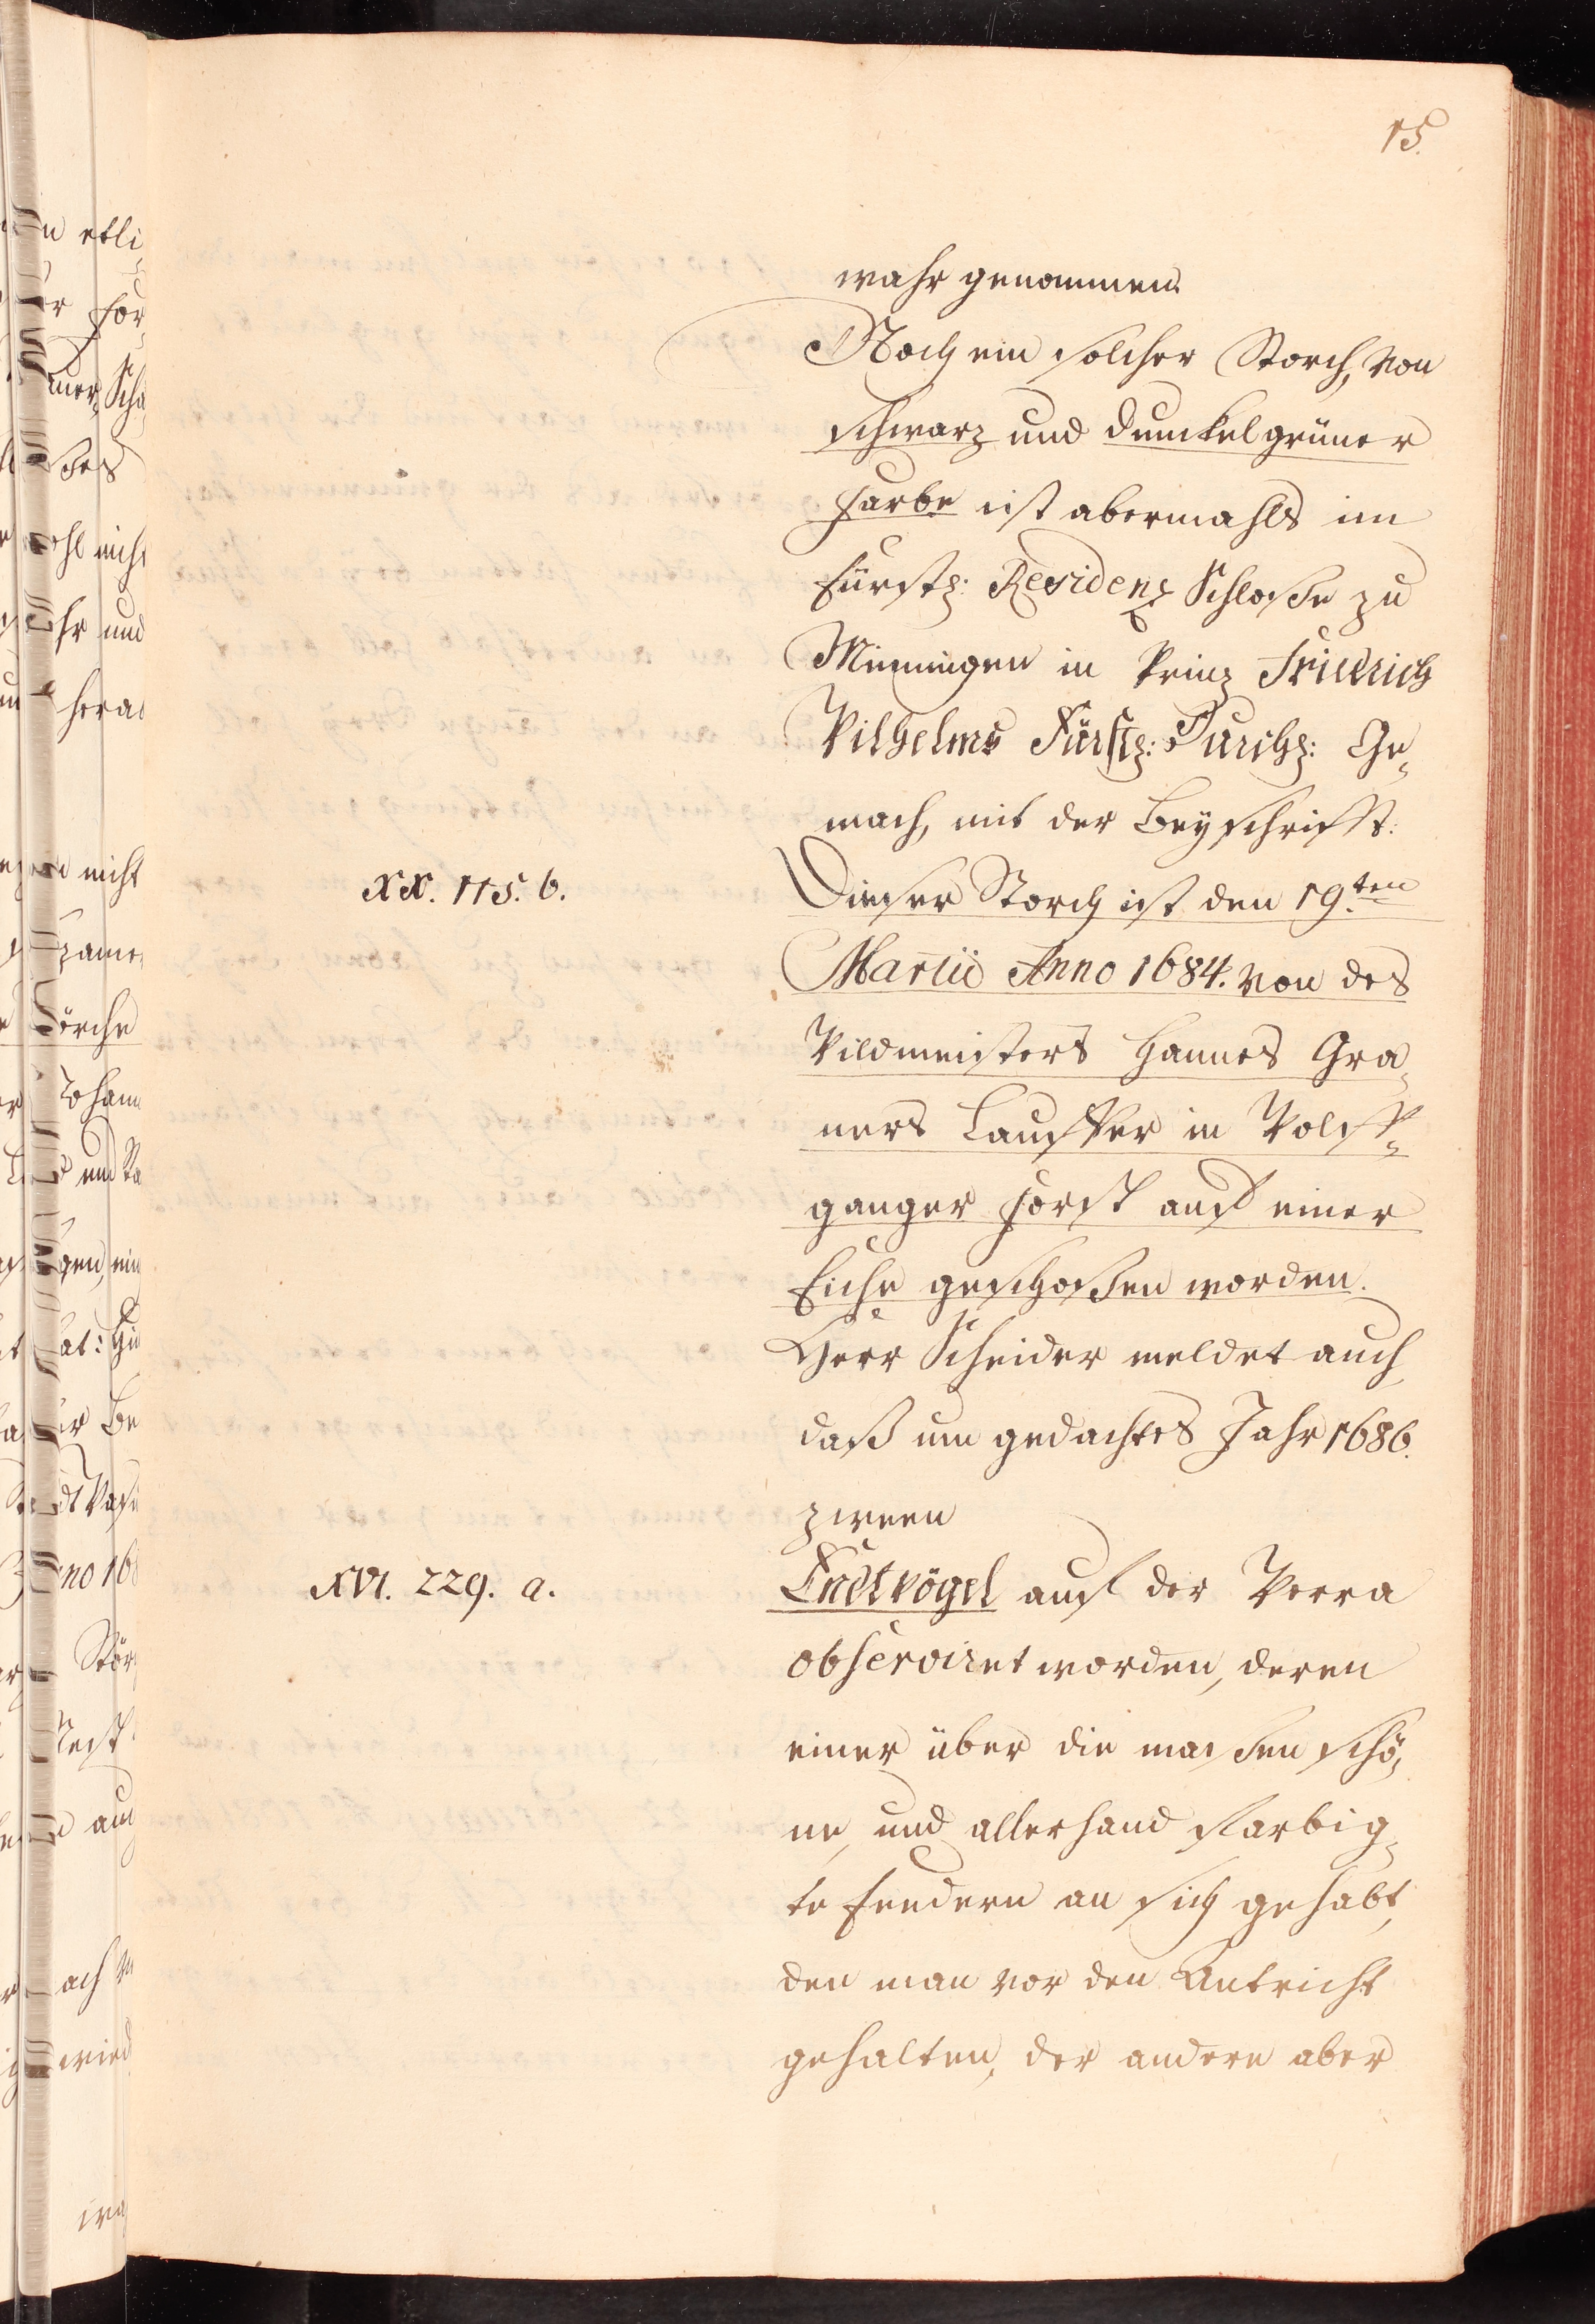 15.
wahr genommen.
Noch ein solcher Storch, von
schwarz und dunckelgrüner
Farbe ist abermahls im
Fürstl: Residenz Schloße zu
Meinungen in Prinz Friedrich
Wilhelms Fürstl: Durchl: Ge„
mach, mit der Beyschrifft:
XX. 115. b.
Dieser Storch ist den 19.ten
Martii Anno 1684. von des
Wildmeisters Hannes Gra„
ners Lauffer in Wolff„
ganger Forst auf einer
Eiche geschoßen worden.
Herr Scheider meldet auch
daß um gedachtes Jahr 1686.
zween
XVI. 229. a.
Endtvögel auf der Werra
observiret worden, deren
einer über die maßen schö„
ne, und allerhand farbig„
te Feedern an sich gehabt,
den man vor den Antricht
gehalten, der andere aber